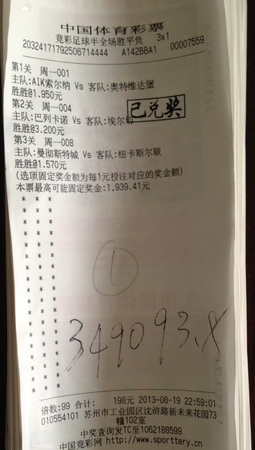 中国体育彩票
竞彩足球半全场胜平负 3x1
20324171792506714444 A142BBA1 00007559
第1关 周一001
主队:AIK索尔纳 Vs 客队:奥特维达堡
胜胜@1.950元
第2关 周一004
主队:巴列卡诺 Vs 客队:埃尔
已兑奖
胜胜@3.200元
第3关 周一008
主队:曼彻斯特城 Vs 客队:纽卡斯尔联
胜胜@1.570元
(选项固定奖金额为每1元投注对应的奖金额)
本票最高可能固定奖金:1,939.41元
1
349093.8
倍数:99 合计: 198元 2013-08-19 22:59:01
010554101 苏州市工业园区沈浒路新未来花园73
幢102室
中奖查询发TC至1062188599
中国竞彩网 http://www.sporttery.cn